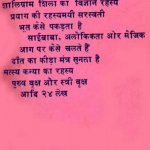 शालिग्राम शिला का विज्ञान रहस्य
प्रयाग की रहस्यमयी सरस्वती
भूत कैसे पकड़ता है
साईंबाबा, अलौकिकता और मैजिक
आग पर कैसे चलते हैं
दाँत का कीड़ा मंत्र सुनता है
मत्स्य कन्या का रहस्य
पुरुष वृक्ष और स्त्री वृक्ष
आदि २४ लेख